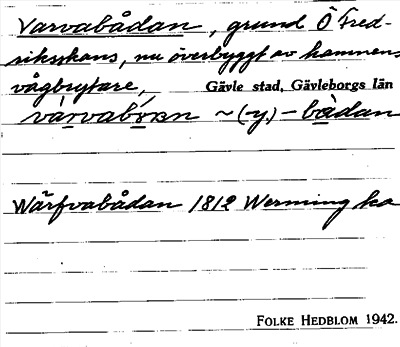 Varvabådan, grund Ö Fred-
riksskans, nu överbyggt av hamnens
vågbrytare, Gävle stad, Gävleborgs län
~ (-y) - bådan
Wärfvabådan 1812 Werming ka
FOLKE HEDBLOM 1942.